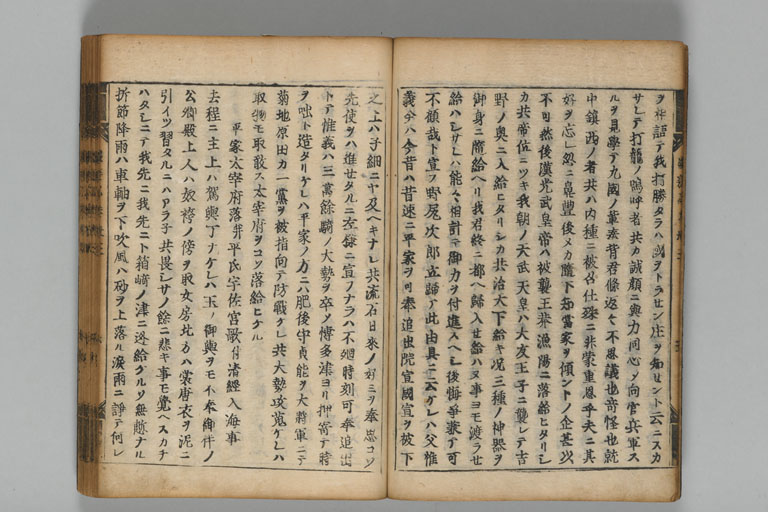 ヲ相語テ我打勝タラハ國ヲトラセン庄ヲ知セント云ニスカ
サレテ打籠ノ鴨呼者共カ誠顔ニ與力同心シ向官兵軍ス
ルヲ見學テ九國ノ輩悉背君條返〻不思議也奇怪也就
中鎮西ノ者共ハ内種ニ被召仕殊ニ非蒙重恩乎夫ニ其
好ヲ忘レ忽ニ鼻豐後メカ隨下知當家ヲ傾ントノ企甚以
不可然後漢光武皇帝ハ被襲王莽漁陽ニ落給ヒタリシ
カ共帝位ニツキ我朝ノ天武天皇ハ大友王子ニ襲レテ吉
野ノ奥ニ入給ヒタリシカ共治天下給キ况三種ノ神器ヲ
御身ニ隨給ヘリ我君終ニ都ヘ歸入セ給ハヌ事ヨモ渡ラセ
給ハシサレハ能〻相計テ御力ヲ付進入ヘシ後悔爭兼テ可
不顧哉ト宣フ野尻次郎立歸テ此由具ニ云ケレハ父惟
義今ハ今昔ハ昔速ニ平家ヲ可奉追出院宣國宣ヲ被下
之上ハ子細ニヤ及ヘキナレ共流石日來ノ好ミヲ奉思コソ
先使ヲハ進セタルニ左樣ニ宣フナラハ不廻時刻可奉追出
トテ惟義ハ三萬餘騎ノ大勢ヲ卒メ博多津ヨリ押寄テ時
ヲ咄ト造タリケレハ平家ノ方ニハ肥後守貞能ヲ大將軍ニテ
菊地原田カ一黨ヲ被指向テ防戰ケレ共大勢攻蒐ケレハ
取物モ取敢ス太宰府ヲコソ落給ヒケル
平家太宰府落幷平氏宇佐宮歌付清經入海事
去程ニ主上ハ駕輿丁ナケレハ玉ノ御輿ヲモ不奉御伴ノ
公卿殿上人ハ奴袴ノ傍ヲ取女房北方ハ裳唐衣ヲ泥ニ
引イツ習タルニハアラ子共畏シサノ餘ニ悲キ事モ覺ヘスカチ
ハタシニテ我先ニ我先ニト箱崎ノ津ニ迯給クルソ無慚ナル
折節降雨ハ車軸ヲ下吹風ハ砂ヲ上落ル涙雨ニ諍テ何レ